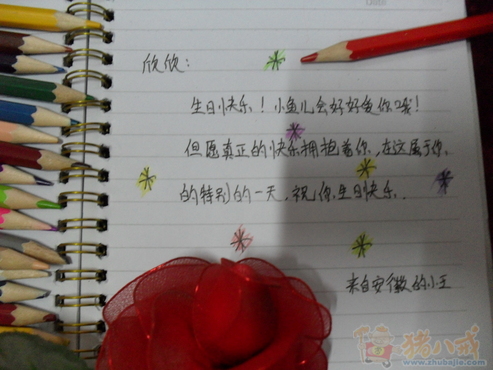 欣欣：
生日快乐！小鱼儿会好好爱你哦！
但愿真正的快乐拥抱着你，在这属于你
的特别的一天，祝你生日快乐．
来自安徽的小王
猪八戒
www.zhubajie.com